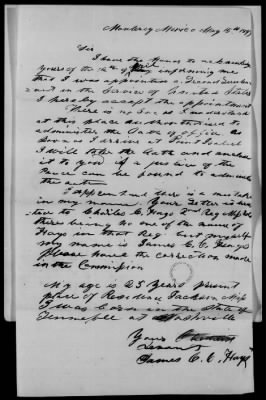 Monterey Mexico May 15th 1847
Sir
I have the Honor to acknowledge
yours of the 12th of informing me
that I was appointed a Second Lieuten-
ant in the Service of United States
I hereby accept the appointment
There is no One as I understand
at this place authorised to
administer the Oath of office as
Soon as I arrive at
I will take the Oath and
it to you if a Justice of the
Peace can be found to administer
the Oath
I apprehend there is a mistake
in my name. Your Letter is
ted to Charles C. Hays 2nd Reg
there being no one of the name of
Hays in that Reg and myself
my name is James C. C. Hays
please have the correction made
in the Commission
My age is 25 Years present
place of Residence Jackson Miss
I was Born in the State of
Tennessee at Nashville
Yours
James C. C. Hays